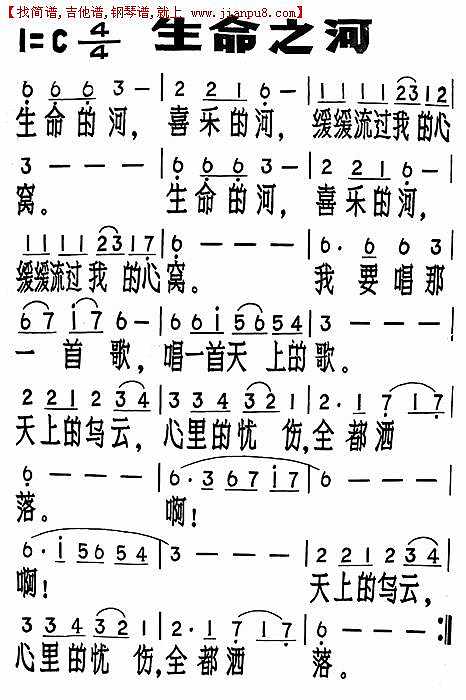 【找简谱,吉他谱,钢琴谱,就上 www.jianpu8.com】
1=C 4/4 生命之河
6 6 6 3 — | 2 2 1 6 — | 1 1 1 1 2 3 1 2 |
生命的河, 喜乐的河, 缓缓流过我的心
3 — — — | 6 6 6 3 — | 2 2 1 6 — |
窝。 生命的河, 喜乐的河,
1 1 1 1 2 3 1 7 | 6 — — — | 6 · 6 6 3 |
缓缓流过我 的心窝。 我要唱那
6 7 i 7 6 — | 6 6 i 5 6 5 4 | 3 — — — |
一首歌, 唱一首天上的歌。
2 2 1 2 3 4 | 3 3 4 3 2 1 | 2 · 1 7 1 7 |
天上的乌云, 心里的忧 伤,全都洒
6 — — — | 6 · 3 6 7 i 7 | 6 — — — |
落。 啊!
6 · i 5 6 5 4 | 3 — — — | 2 2 1 2 3 4 |
啊! 天上的乌云,
3 3 4 3 2 1 | 2 · 1 7 1 7 | 6 — — — :||
心里的忧 伤,全都洒 落。